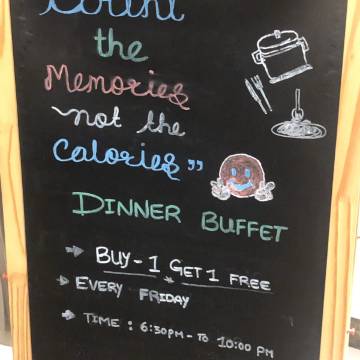 Count
the
Memories
not the
Calories"
DINNER BUFFET
BUY-1 GET 1 FREE
EVERY FRIDAY
TIME : 6:30PM - TO 10:00 PM